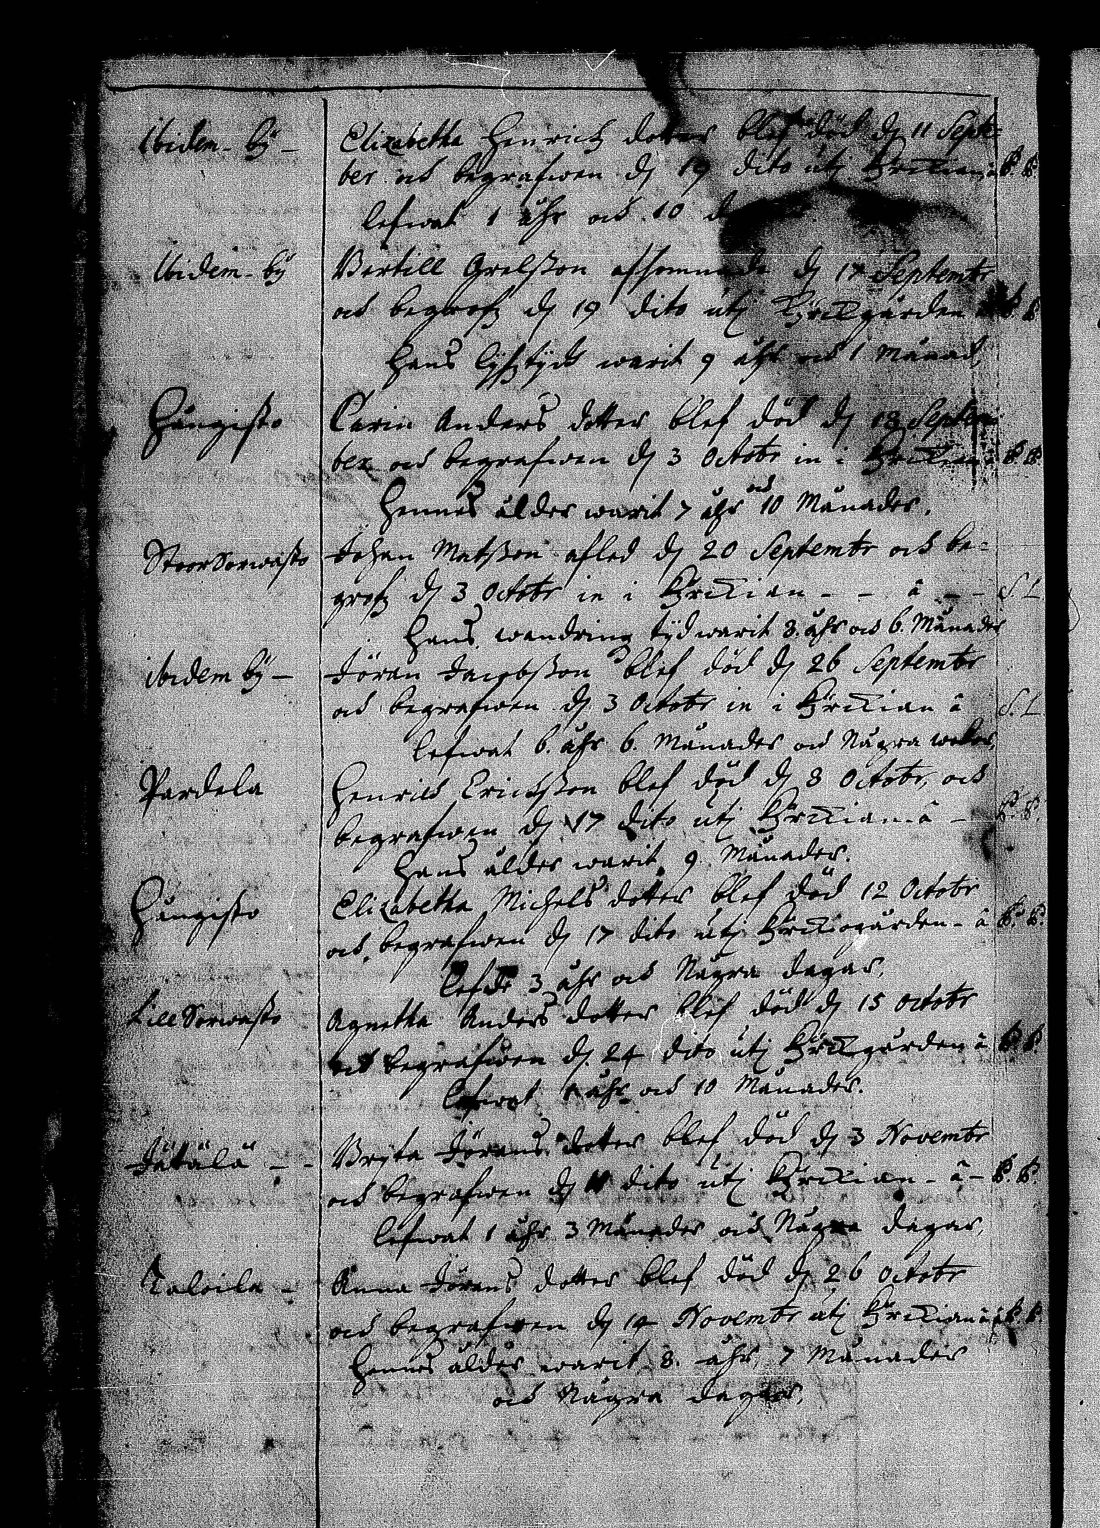 Ibidem by – Elizabetha Henrichz dotter blef död dj 11 Septem=
ber och begrafwen dj 19 dito utj Kyrckian â P. P.
lefwat 1 åhr och 10
Ibidem by Bertill Grelsson afsomnade dj 17 Septembr
och begrofz dj 19 dito utj Kyrckgården â P. P.
Hans lijfztijdh warit 9 åhr och 1 Månad
Hångisto Carin Anders dotter blef död dj 18 Septem
ber och begrafwen dj 3 Octobr in i Kyrckian â P. P.
Hennes ålder warit 7 åhr och 10 Månader.
Stoor Sorwasto Johan Matsson afled dj 20 Septembr och be=
grofz dj 3 Octobr in i Kyrckian - - â - - S. L.
Hans wandring tijd warit 3. åhr och 6. Månader
ibidem by – Jöran Jacobsson blef död dj 26 Septembr
och begrafwen dj 3 Octobr in i Kyrckian â S. L.
lefwat 6. åhr 6. Månader och Några wekor,
Pardela Henrich Erichsson blef död dj 8 Octobr, och
begrafwen dj 17 dito utj Kyrckian â – P. P.
Hans ålder warit 9. Månader.
Hångisto Elizabetha Michels dotter blef död 12 Octobr
och begrafwen dj 17 dito utj Kyrckiogården - â P. P.
lefde 3 åhr och Några dagar,
Lill Sorwasto Agnetha Anders dotter blef död dj 15 Octobr
och begrafwen dj 24 dito utj Kyrckgården â P. P.
lefwat 1 åhr och 10 Månader.
Jätälä - - Brita Jörans dotter blef död dj 3 Novembr
och begrafwen dj 11 dito utj Kyrckian - â – P. P.
lefwat 1 åhr 3 Månader och Några dagar,
Taloila – Anna Jörans dotter blef död dj 26 Octobr
och begrafwen dj 14 Novembr utj Kyrckian â P. P.
Hennes ålder warit 8. åhr, 7 Månader
och Några dagar,